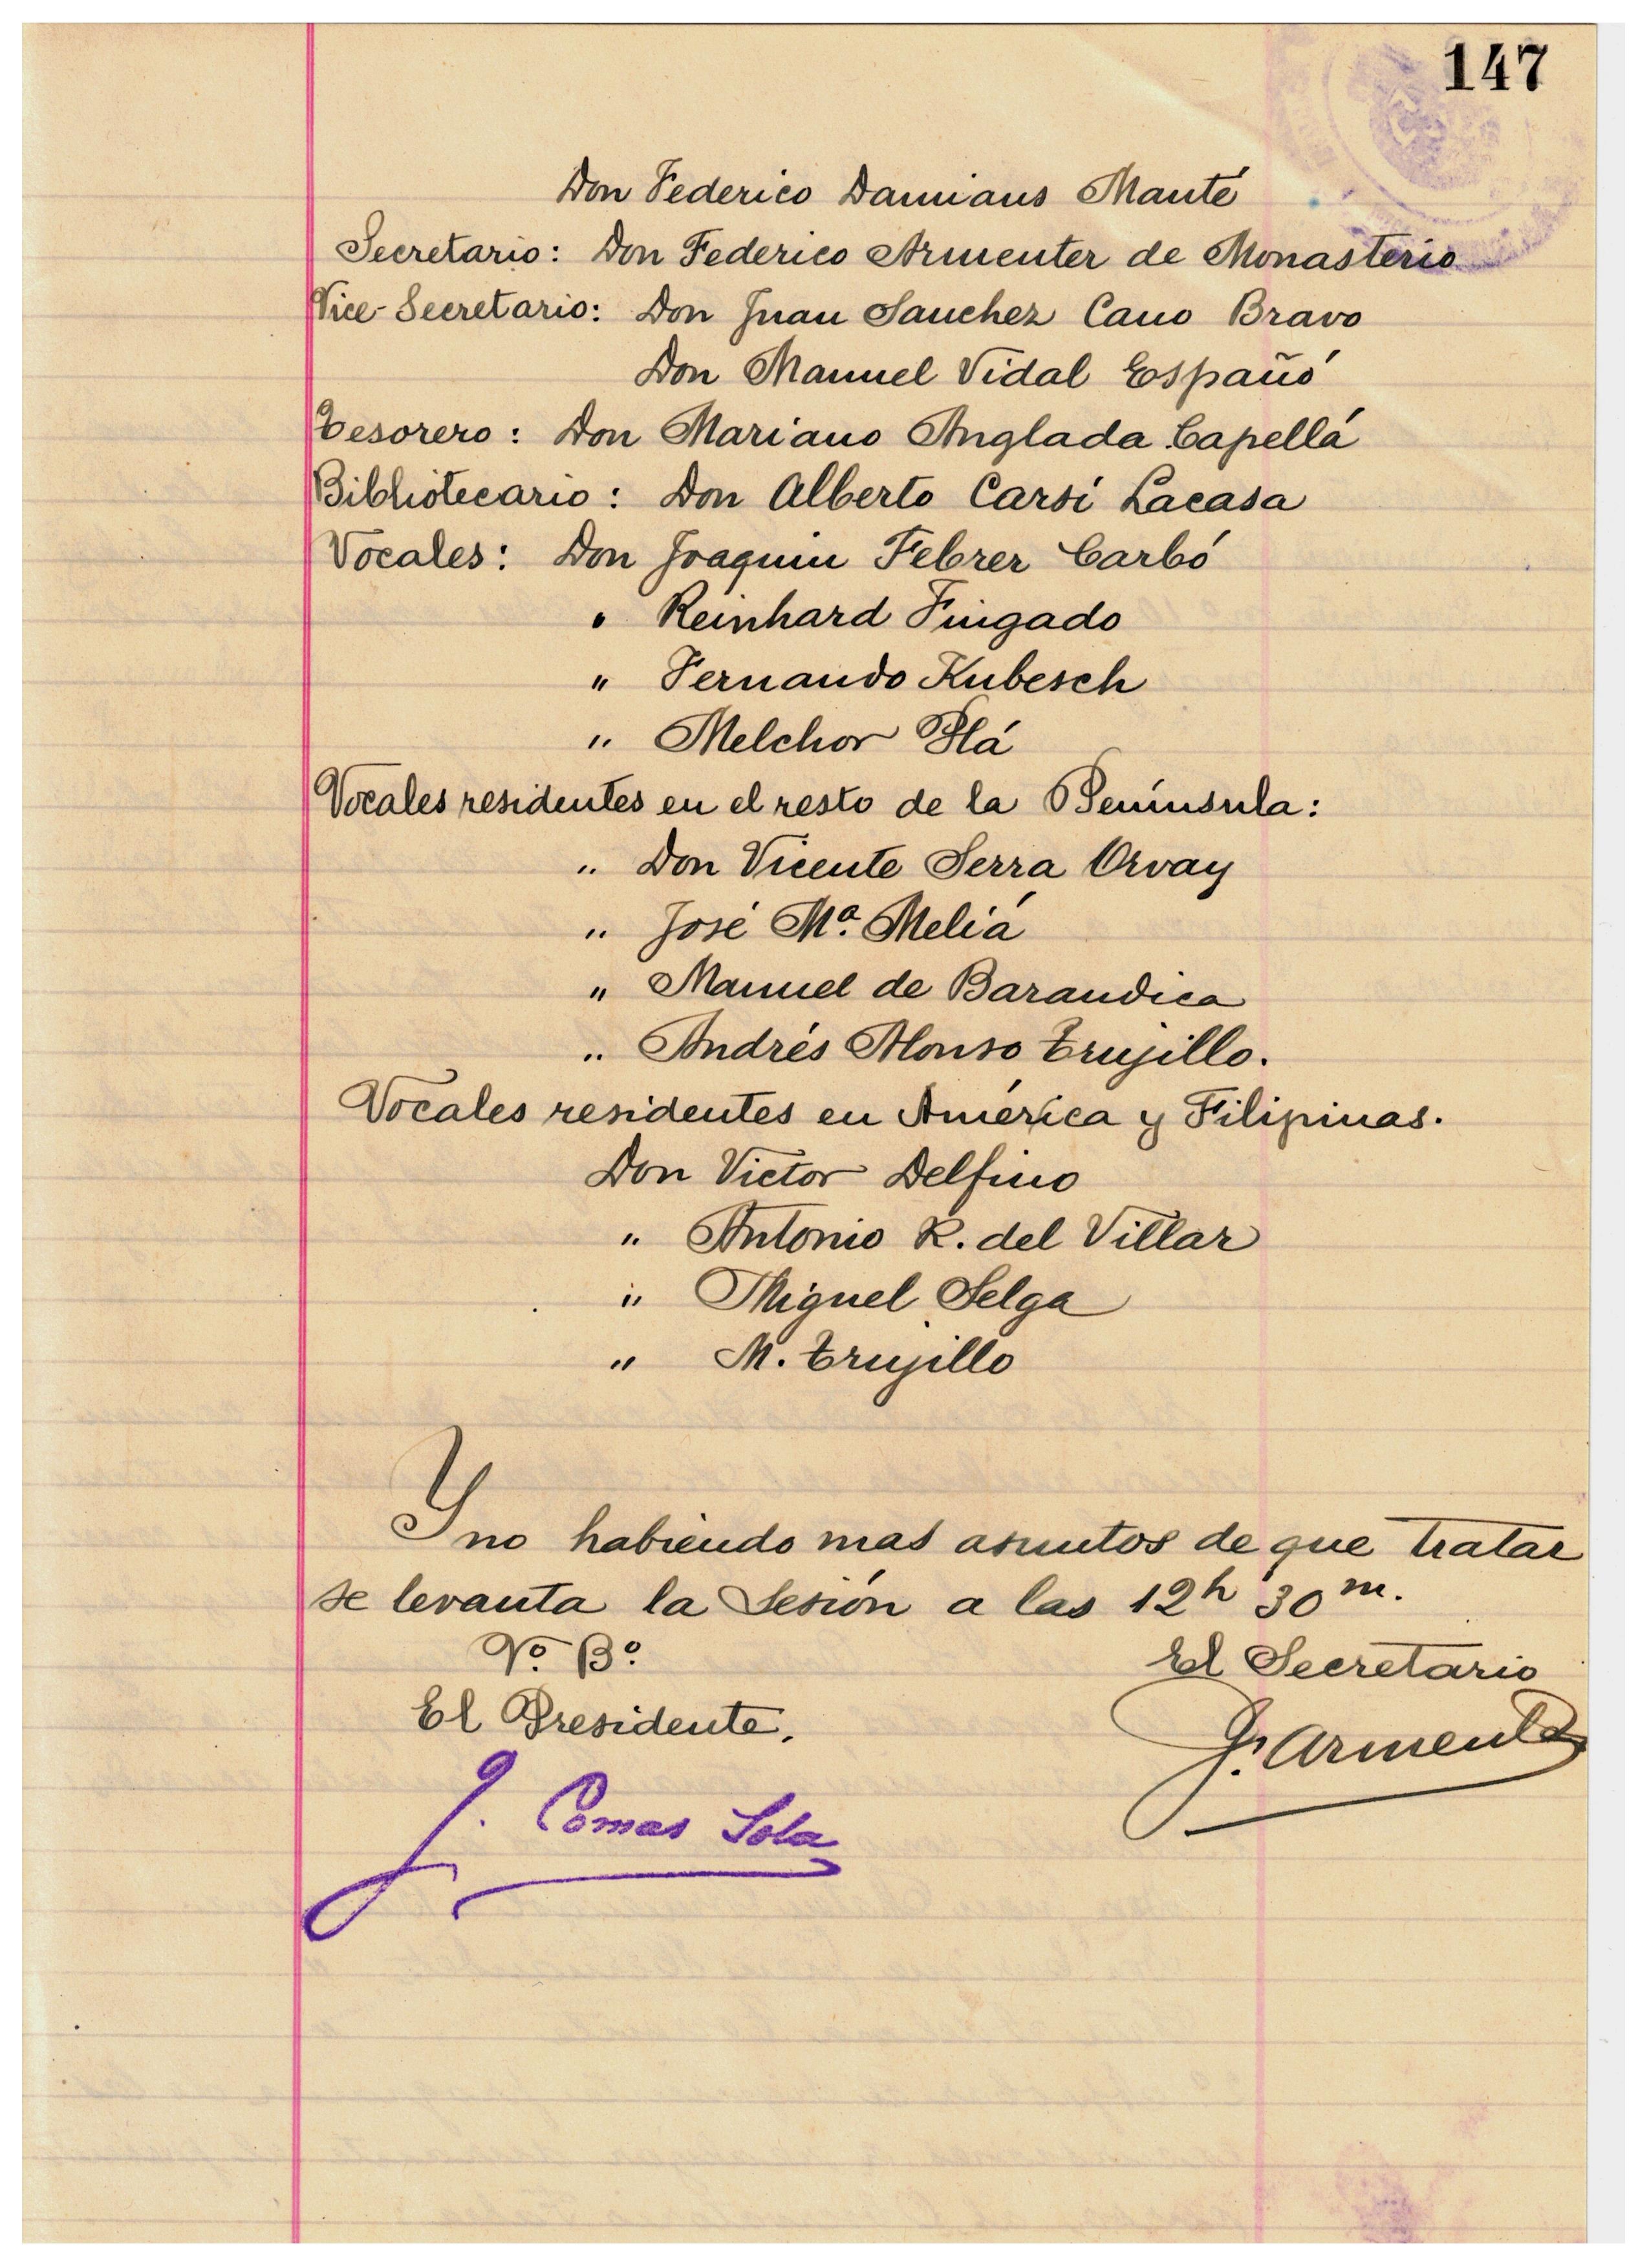 147
Don Federico Damians Manté
Secretario: Don Federico Armenter de Monasterio
Vice-Secretario: Don Juan Sanchez Cano Bravo
Don Manuel Vidal Españó
Tesorero: Don Mariano Anglada Capellá
Bibliotecario: Don Alberto Carsí Lacasa
Vocales: Don Joaquin Febrer Carbó
" Reinhard Fingado
" Fernando Kubesch
" Melchor Plá
Vocales residentes en el resto de la Península:
" Don Vicente Serra Orvay
" José Mª. Meliá
" Manuel de Barandica
" Andrés Alonso Trujillo.
Vocales residentes en América y Filipinas.
Don Victor Delfino
" Antonio R. del Villar
" Miguel Selga
" M. Trujillo
Y no habiendo mas asuntos de que tratar
se levanta la Sesión a las 12h 30m.
Vº. Bº.
El Secretario
El Presidente,
F. Armenter
J. Comas Sola